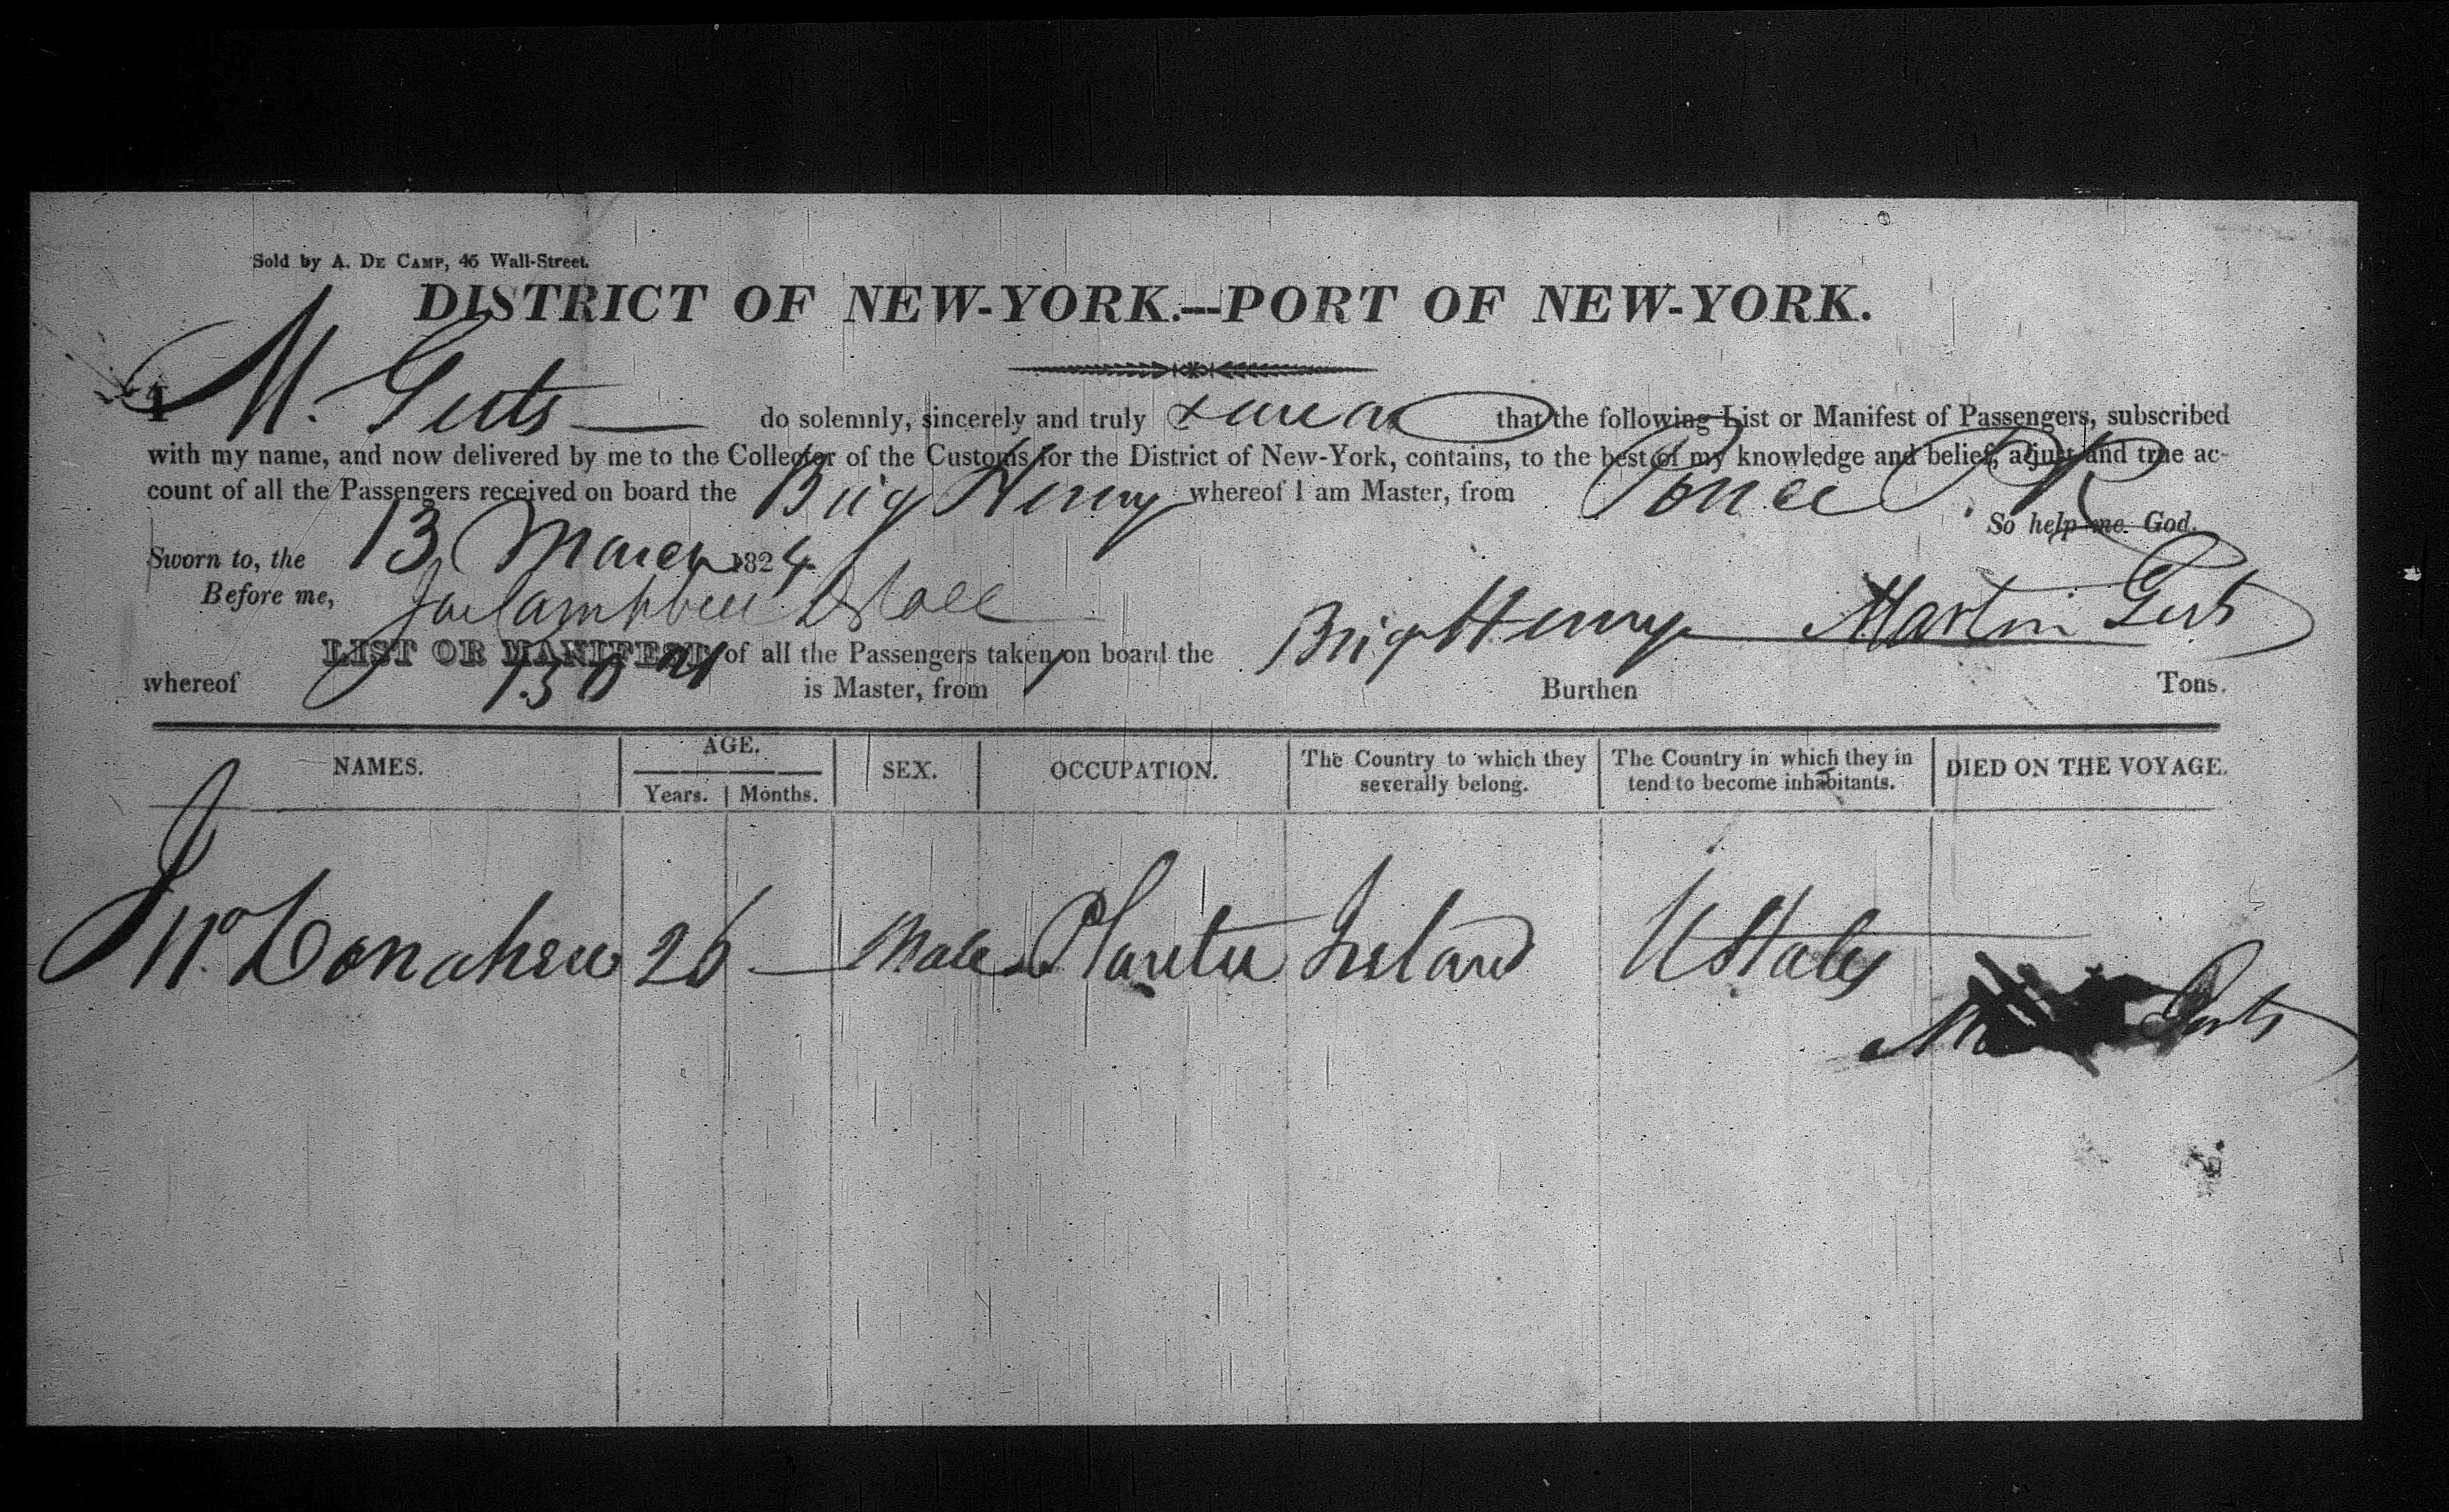 Sold by A. De Camp, 45 Wall-Street.
DISTRICT OF NEW-YORK.--PORT OF NEW-YORK.
I M. Gerts do solemnly, sincerely and truly swear that the following List or Manifest of Passengers, subscribed
with my name, and now delivered by me to the Collector of the Customs for the District of New-York, contains, to the best of my knowledge and belief, a just and true ac-
count of all the Passengers received on board the Brig Henry whereof I am Master, from Ponce P. R
So help me God.
Sworn to, the 13 March 1824
Before me, Martin Gerts
LIST OR MANIFEST of all the Passengers taken on board the Brig Henry
whereof is Master, from Burthen Tons.
NAMES. AGE. Years. Months. SEX. OCCUPATION. The Country to which they severally belong. The Country in which they in tend to become inhabitants. DIED ON THE VOYAGE.
J Mc Donaheu 26 Male Planter Ireland U States
Gerts